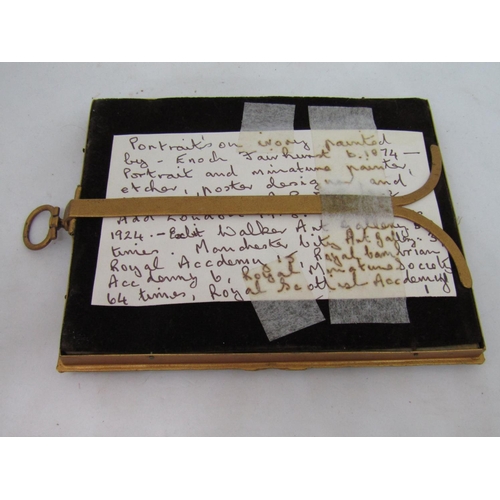 Portrait's on ivory painted
by - Enoch Fairhurst b. 1874 -
Portrait and miniature painter,
etcher, poster designer and
Add London
1924. - Exbt Walker Art Gallery
times. Manchester City Art Gally.
Royal Accdemy 15, Royal Cambrian
Accdemy 6, Royal Miniature Society
64 times, Royal Scottish Accdemy